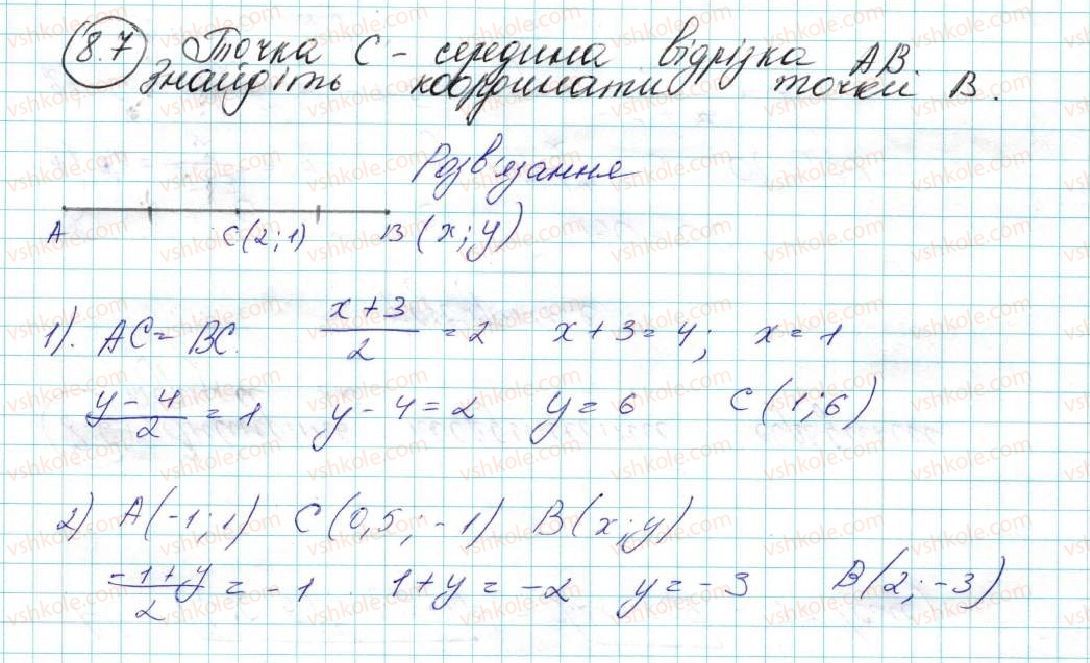 8.7 Точка C - середина відрізка AB.
Знайдіть координати точки B.
Розв'язання
A C(2;1) B(x;y)
1). AC = BC. (x+3)/2 = 2 x+3=4; x=1
(y-4)/2 = 1 y-4=2 y=6 C(1;6)
2) A(-1;1) C(0,5;-1) B(x;y)
(-1+y)/2 = -1 1+y=-2 y=-3 B(2;-3)